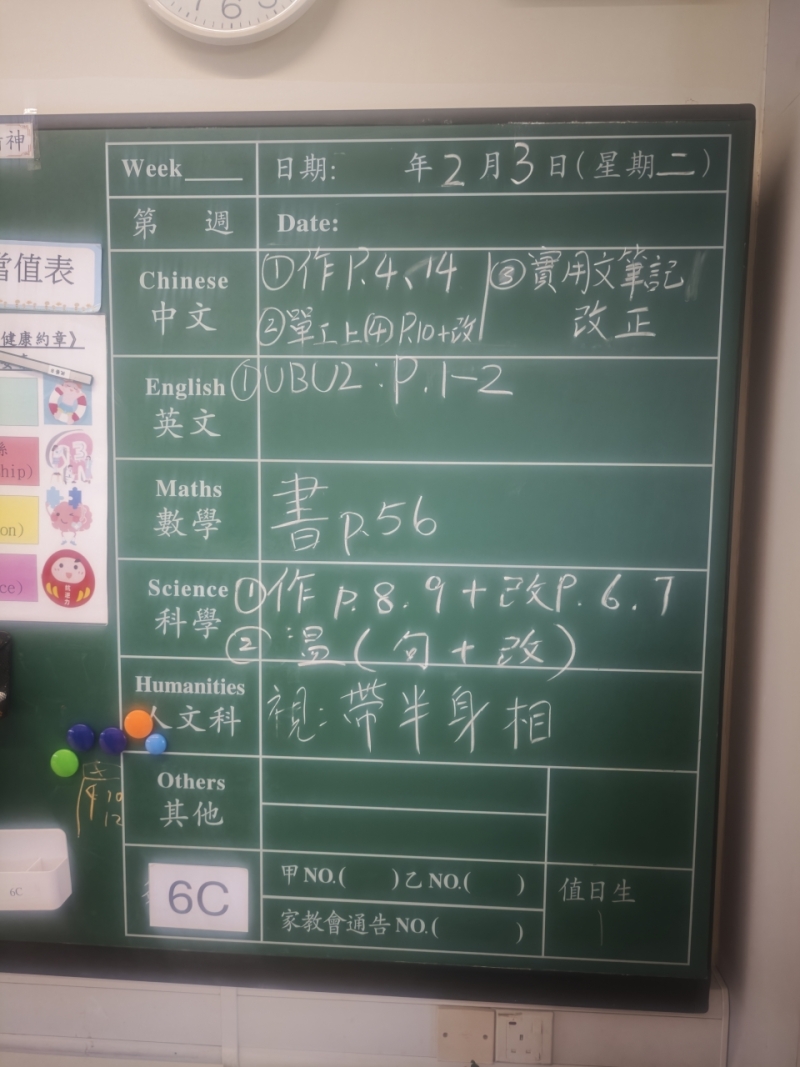 6
神
Week____ 日期: 年2月3日(星期二)
第 週 Date:
當值表
Chinese
中文
①作P.4、14
②單工上(4) P.10+改
③實用文筆記
改正
健康約章》
English
英文
①UBU2:P.1-2
hip)
on)
ce)
Maths
數學
書p.56
Science
科學
①作p.8.9+改P.6.7
②溫(句+改)
Humanities
人文科
視:帶半身相
Others
其他
6C
甲NO.( )乙NO.( )
家教會通告NO.( )
值日生
6C